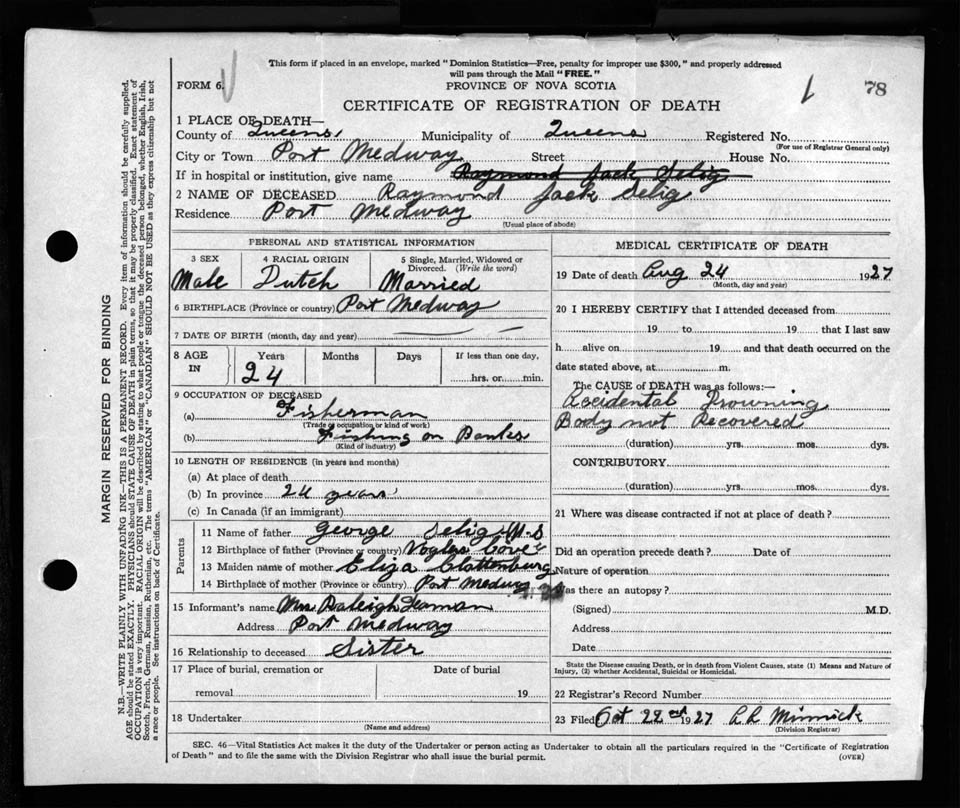 This form if placed in an envelope, marked "Dominion Statistics—Free, penalty for improper use $300," and properly addressed
will pass through the Mail "FREE."
FORM 6.
PROVINCE OF NOVA SCOTIA
1 78
CERTIFICATE OF REGISTRATION OF DEATH
1 PLACE OF DEATH—
County of Queens Municipality of Queens Registered No.
(For use of Registrar General only)
City or Town Port Medway Street House No.
If in hospital or institution, give name Raymond Jack Selig
2 NAME OF DECEASED Raymond Jack Selig
Residence Port Medway
(Usual place of abode)
PERSONAL AND STATISTICAL INFORMATION
3 SEX 4 RACIAL ORIGIN 5 Single, Married, Widowed or
Divorced. (Write the word)
Male Dutch Married
6 BIRTHPLACE (Province or country) Port Medway
7 DATE OF BIRTH (month, day and year)
8 AGE IN Years Months Days If less than one day,
24 hrs. or min.
9 OCCUPATION OF DECEASED
(a) Fisherman
(Trade occupation or kind of work)
(b) Fishing on Banks
(Kind of industry)
10 LENGTH OF RESIDENCE (in years and months)
(a) At place of death
(b) In province 24 years
(c) In Canada (if an immigrant)
Parents
11 Name of father George Selig
12 Birthplace of father (Province or country) Voglers Cove
13 Maiden name of mother Eliza Clattenburg
14 Birthplace of mother (Province or country) Port Medway
15 Informant's name Mrs. Raleigh Seaman
Address Port Medway
16 Relationship to deceased Sister
17 Place of burial, cremation or Date of burial
removal 19
18 Undertaker
(Name and address)
MEDICAL CERTIFICATE OF DEATH
19 Date of death Aug 24 1927
(Month, day and year)
20 I HEREBY CERTIFY that I attended deceased from
19 to 19 that I last saw
h alive on 19 and that death occurred on the
date stated above, at m.
The CAUSE of DEATH was as follows:—
Accidental Drowning
Body not Recovered
(duration) yrs. mos. dys.
CONTRIBUTORY
(duration) yrs. mos. dys.
21 Where was disease contracted if not at place of death?
Did an operation precede death? Date of
Nature of operation
Was there an autopsy?
(Signed) M.D.
Address
Date
State the Disease causing Death, or in death from Violent Causes, state (1) Means and Nature of
Injury, (2) whether Accidental, Suicidal or Homicidal.
22 Registrar's Record Number
23 Filed Oct 22nd 1927 L L Minnick
(Division Registrar)
SEC. 46—Vital Statistics Act makes it the duty of the Undertaker or person acting as Undertaker to obtain all the particulars required in the "Certificate of Registration
of Death" and to file the same with the Division Registrar who shall issue the burial permit.
(OVER)
MARGIN RESERVED FOR BINDING
N.B.—WRITE PLAINLY WITH UNFADING INK—THIS IS A PERMANENT RECORD. Every item of information should be carefully supplied.
AGE should be stated EXACTLY. PHYSICIANS should STATE CAUSE OF DEATH in plain terms, so that it may be properly classified. Exact statement of
OCCUPATION is very important. RACIAL ORIGIN will be described by stating to what people or tongue the deceased person belonged, whether English, Irish,
Scotch, French, German, Russian, Ruthenian, etc. The terms "AMERICAN" or "CANADIAN" SHOULD NOT BE USED as they express citizenship but not
a race or people. See instructions on back of Certificate.